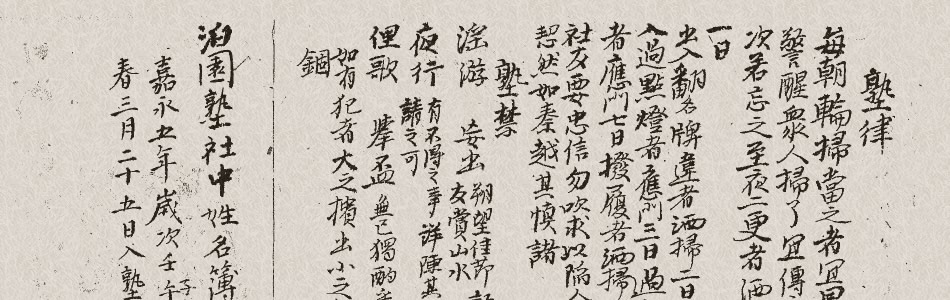 塾律
每朝輪掃當之者宜
警醒衆人掃了宜傳
次若忘之至夜二更者洒
一日
出入翻名牌違者洒掃二日
入過點燈者應門三日過
者應門七日撥履者洒掃
社友要忠信勿吹求以陥人
恝然如秦越其慎諸
塾禁
淫游 妄出 朔望佳節 友賞山水
夜行 有不得之事詳陳其 請之可
俚歌 擧盃 無已獨酌
如有犯者大之擯出小之
錮
泊園塾社中姓名簿
嘉永五年歳次壬子
春三月二十五日入塾